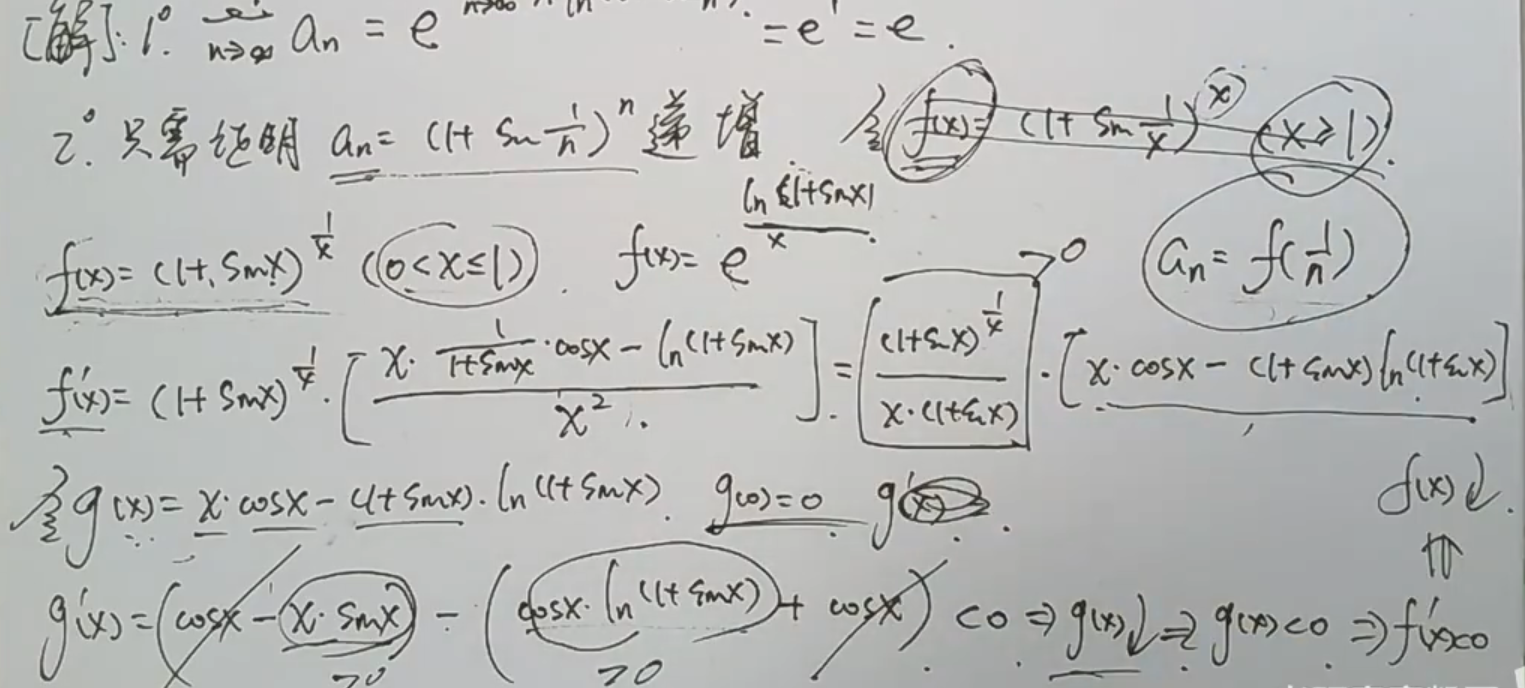 [解]: 1°. n→∞ aₙ = e n→∞ = e¹ = e.
2°. 只需证明 aₙ = (1+ sin 1/n)ⁿ 递增 令 f(x) = (1+ sin 1/x)^x (x≥1).
f(x) = (1+ sinx)^(1/x) (0<x≤1). f(x) = e^(ln(1+sinx)/x). >0 aₙ = f(1/n)
f'(x) = (1+ sinx)^(1/x) · [(x · 1/(1+sinx) · cosx − ln(1+sinx))/x²]. = [(1+sinx)^(1/x)/(x·(1+sinx))] · [x·cosx − (1+sinx)ln(1+sinx)]
令 g(x) = x·cosx − (1+sinx)·ln(1+sinx). g(0)=0 f(x)↓.
⇑
g'(x) = (cosx − x·sinx) − (cosx·ln(1+sinx) + cosx) <0 ⇒ g(x)↓ ⇒ g(x)<0 ⇒ f'(x)<0
>0 >0